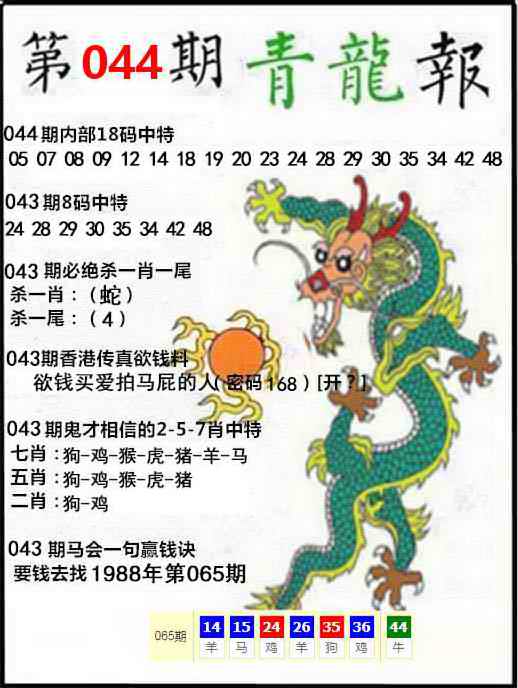 第044期青龍報
044期内部18码中特
05 07 08 09 12 14 18 19 20 23 24 28 29 30 35 34 42 48
043期8码中特
24 28 29 30 35 34 42 48
043期必绝杀一肖一尾
杀一肖：（蛇）
杀一尾：（4）
043期香港传真欲钱料
欲钱买爱拍马屁的人（密码168）[开？]
043期鬼才相信的2-5-7肖中特
七肖：狗-鸡-猴-虎-猪-羊-马
五肖：狗-鸡-猴-虎-猪
二肖：狗-鸡
043期马会一句赢钱诀
要钱去找1988年第065期
065期 14 15 24 26 35 36 44
羊 马 鸡 羊 狗 鸡 牛